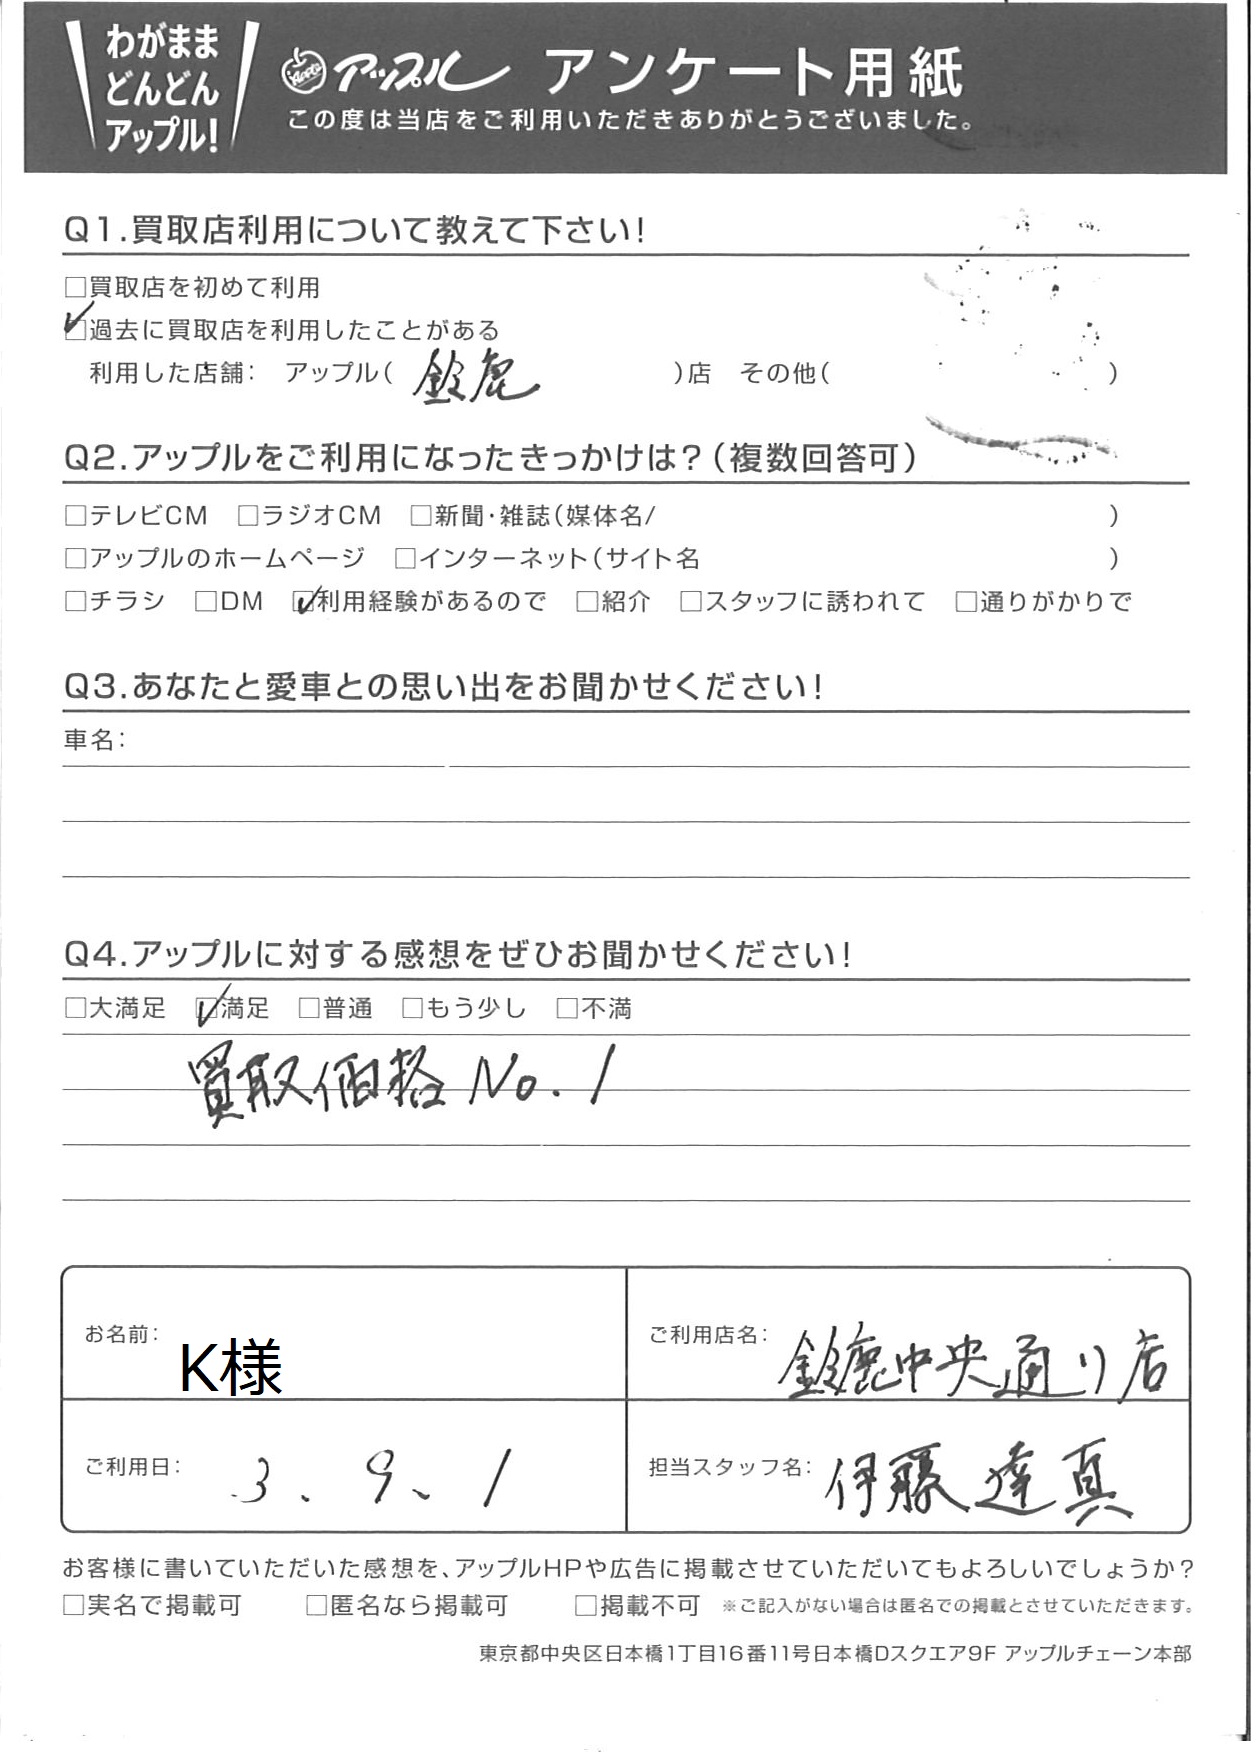 わがまま
どんどん
アップル!
APPLE アップル アンケート用紙
この度は当店をご利用いただきありがとうございました。
Q1.買取店利用について教えて下さい!
□買取店を初めて利用
☑過去に買取店を利用したことがある
利用した店舗: アップル( 鈴鹿 )店 その他( )
Q2.アップルをご利用になったきっかけは?(複数回答可)
□テレビCM □ラジオCM □新聞・雑誌(媒体名/ )
□アップルのホームページ □インターネット(サイト名 )
□チラシ □DM ☑利用経験があるので □紹介 □スタッフに誘われて □通りがかりで
Q3.あなたと愛車との思い出をお聞かせください!
車名:
Q4.アップルに対する感想をぜひお聞かせください!
□大満足 ☑満足 □普通 □もう少し □不満
買取価格No.1
お名前: K様
ご利用店名: 鈴鹿中央通り店
ご利用日: 3、9、1
担当スタッフ名: 伊藤達真
お客様に書いていただいた感想を、アップルHPや広告に掲載させていただいてもよろしいでしょうか?
□実名で掲載可 □匿名なら掲載可 □掲載不可 ※ご記入がない場合は匿名での掲載とさせていただきます。
東京都中央区日本橋1丁目16番11号日本橋Dスクエア9F アップルチェーン本部